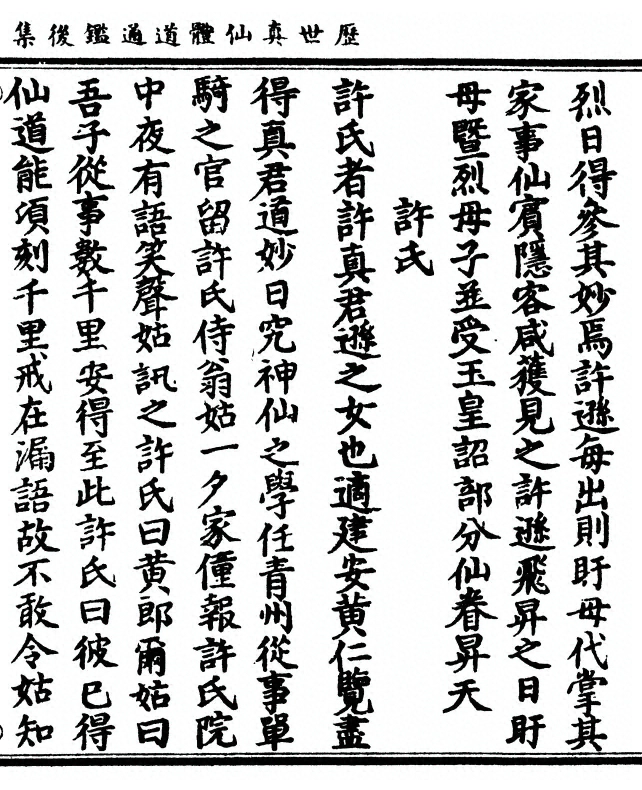 歷世真仙體道通鑑後集
烈日得參其妙焉許遜每出則盱母代掌其
家事仙賓隱客咸獲見之許遜飛昇之日盱
母暨烈母子並受玉皇詔部分仙眷昇天
許氏
許氏者許真君遜之女也適建安黃仁覽盡
得真君道妙日究神仙之學任青州從事單
騎之官留許氏侍翁姑一夕家僮報許氏院
中夜有語笑聲姑訊之許氏曰黃郎爾姑曰
吾子從事數千里安得至此許氏曰彼已得
仙道能頃刻千里戒在漏語故不敢令姑知